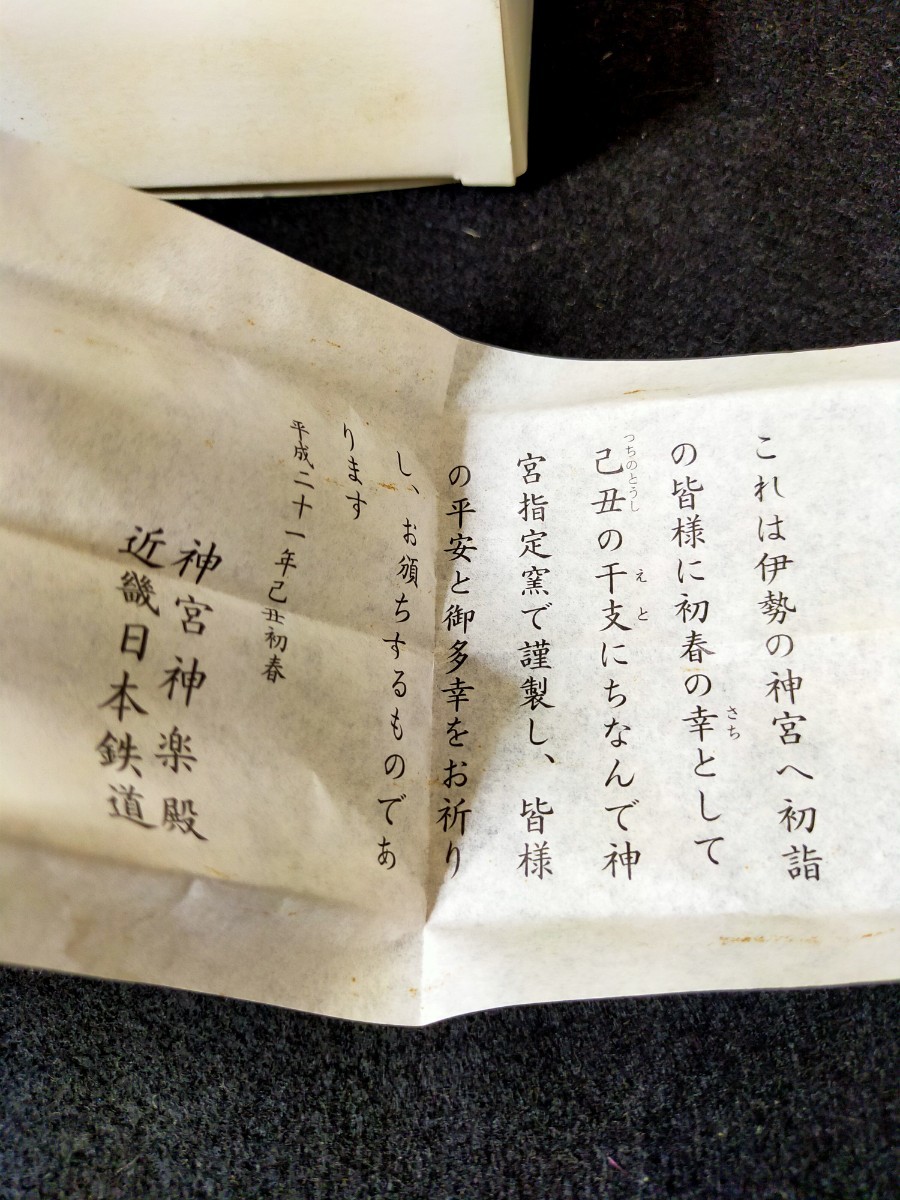 これは伊勢の神宮へ初詣
の皆様に初春の幸として
さち
己丑の干支にちなんで神
つちのとうし
えと
宮指定窯で謹製し、皆様
の平安と御多幸をお祈り
し、お頒ちするものであ
ります
平成二十一年己丑初春
神宮神楽殿
近畿日本鉄道